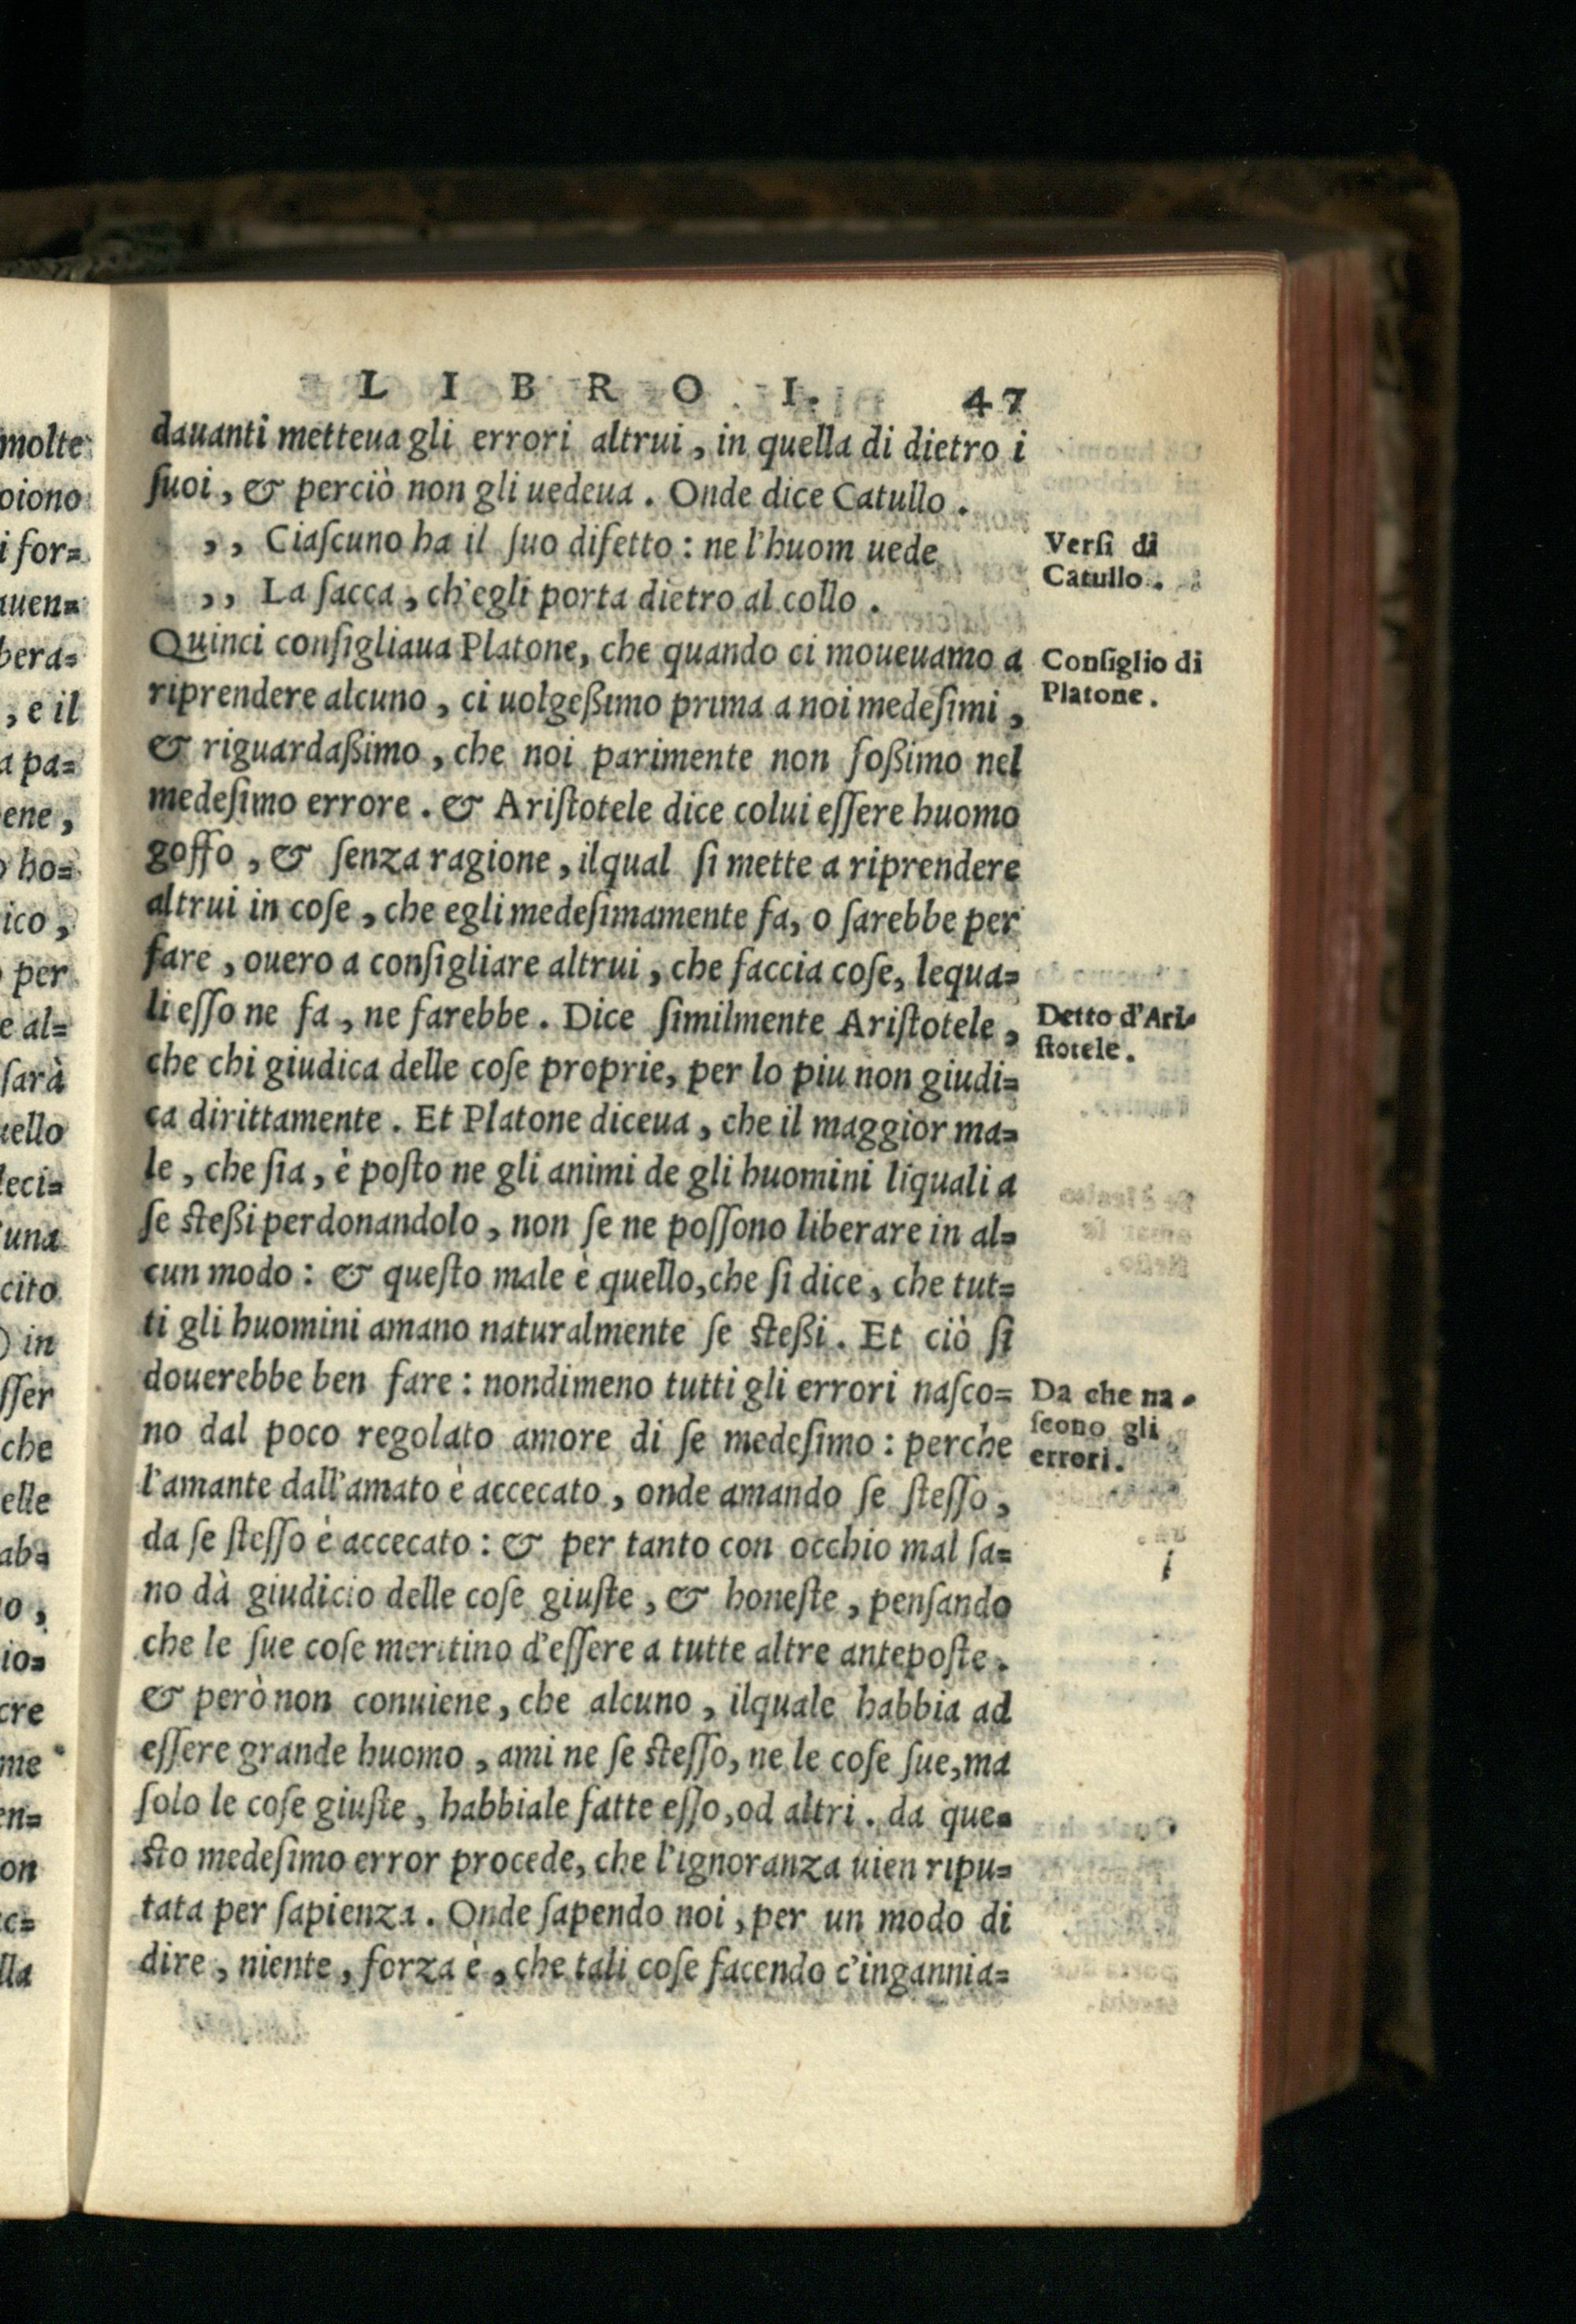 LIBRO I. 47
dauanti metteua gli errori altrui, in quella di dietro i
ſuoi, & perciò non gli uedeua. Onde dice Catullo.
,, Ciaſcuno ha il ſuo difetto: ne l'huom uede
,, La ſacca, ch'egli porta dietro al collo.
Verſi di
Catullo.
Quinci conſigliaua Platone, che quando ci moueuamo a
riprendere alcuno, ci uolgeßimo prima a noi medeſimi,
& riguardaßimo, che noi parimente non foßimo nel
medeſimo errore. & Ariſtotele dice colui eſſere huomo
goffo, & ſenza ragione, ilqual ſi mette a riprendere
altrui in coſe, che egli medeſimamente fa, o ſarebbe per
fare, ouero a conſigliare altrui, che faccia coſe, lequa=
li eſſo ne fa, ne farebbe. Dice ſimilmente Ariſtotele,
che chi giudica delle coſe proprie, per lo piu non giudi=
ca dirittamente. Et Platone diceua, che il maggior ma=
le, che ſia, è poſto ne gli animi de gli huomini liquali a
ſe steßi perdonandolo, non ſe ne poſſono liberare in al=
cun modo: & queſto male è quello, che ſi dice, che tut=
ti gli huomini amano naturalmente ſe steßi. Et ciò ſi
douerebbe ben fare: nondimeno tutti gli errori naſco=
no dal poco regolato amore di ſe medeſimo: perche
l'amante dall'amato è accecato, onde amando ſe ſteſſo,
da ſe ſteſſo è accecato: & per tanto con occhio mal ſa=
no dà giudicio delle coſe giuſte, & honeſte, penſando
che le ſue coſe meritino d'eſſere a tutte altre antepoſte.
& però non conuiene, che alcuno, ilquale habbia ad
eſſere grande huomo, ami ne ſe steſſo, ne le coſe ſue, ma
ſolo le coſe giuſte, habbiale fatte eſſo, od altri. da que=
sto medeſimo error procede, che l'ignoranza uien ripu=
tata per ſapienza. Onde ſapendo noi, per un modo di
dire, niente, forza è, che tali coſe facendo c'ingannia=
Conſiglio di
Platone.
Detto d'Ari=
ſtotele.
Da che na=
ſcono gli
errori.
molte
oiono
i for=
auen=
bera=
, e il
a pa=
ene,
o ho=
ico,
per
e al=
ſarà
uello
leci=
una
cito
) in
ſſer
che
elle
ab=
o,
io=
cre
me
en=
on
lla